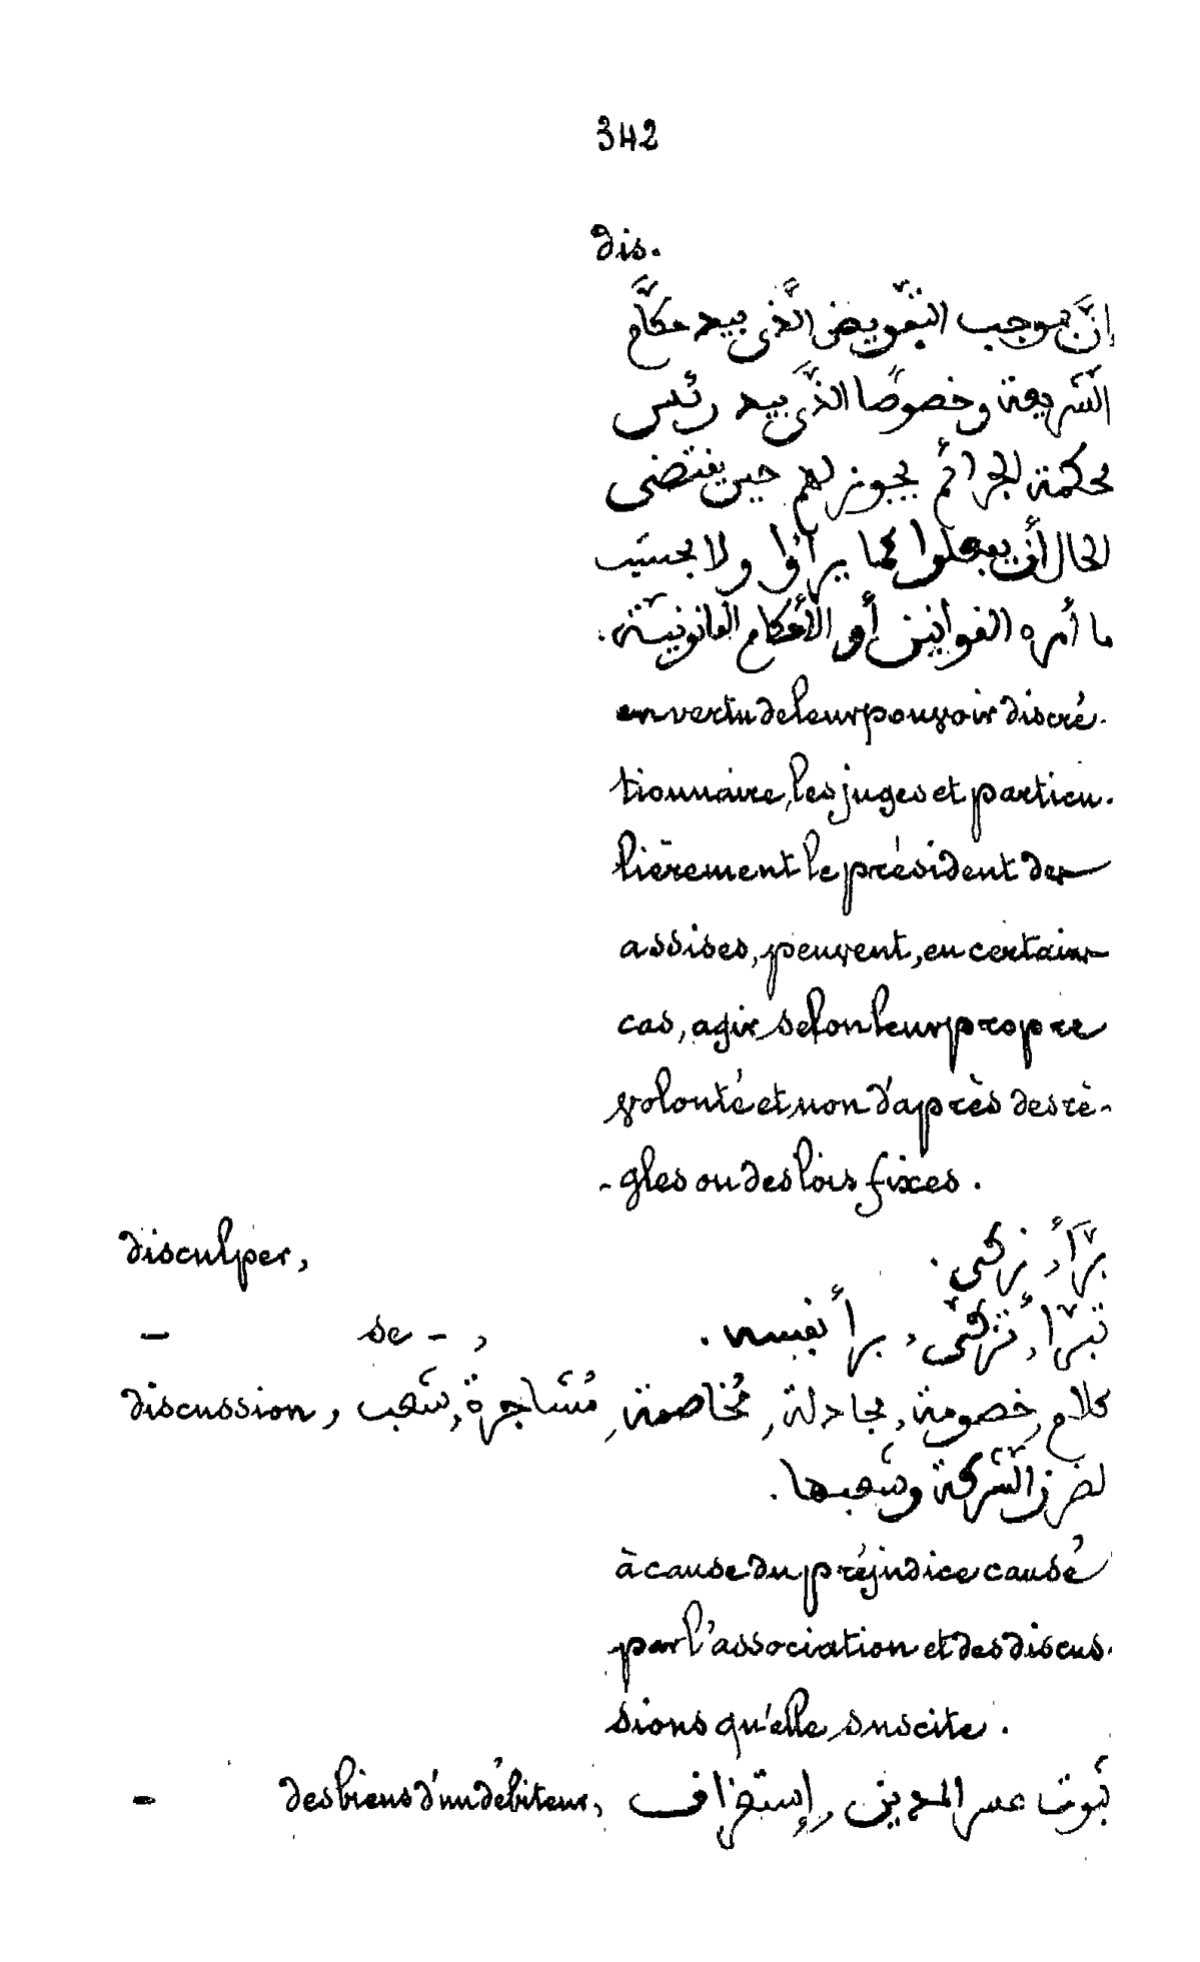 342
dis.
إنَّ بموجب التّفويض الَّذي بيد حكّام
الشّريعة وخصوصًا الذّي بيد رئيس
محكمة الجرائم يجوز لهم حين يقتضى
الحال أن يعملوا كما يرآوا ولا بحسب
ما أمره القوانين أو الأحكام القانونيّة.
en vertu de leur pouvoir discré-
tionnaire, les juges et particu-
lièrement le président des
assises, peuvent, en certains
cas, agir selon leur propre
volonté et non d'après des rè-
-gles ou des lois fixes.
disculper, برّأ, زكّى.
— se -, تبرّأ, تزكّى, برأ نفسه.
discussion, كلام, خصومة, مجادلة, مُخاصمة, مُشَاجرة, شَعب
لضرر الشّركة وشَعبها.
à cause du préjudice causé
par l'association et des discus-
sions qu'elle suscite.
— des biens d'un débiteur, ثبوت عسر المدين, إستضراف